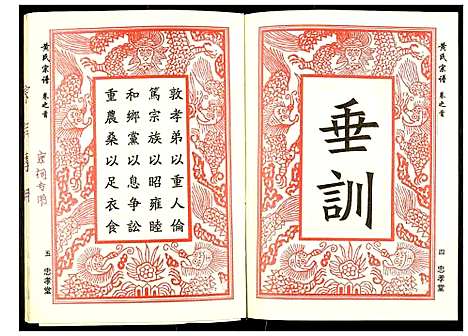 黃氏宗谱 卷之首
垂訓
四 忠孝堂
敦孝弟以重人倫
篤宗族以昭雍睦
和鄉黨以息争訟
重農桑以足衣食
黃氏宗谱 卷之首
五 忠孝堂